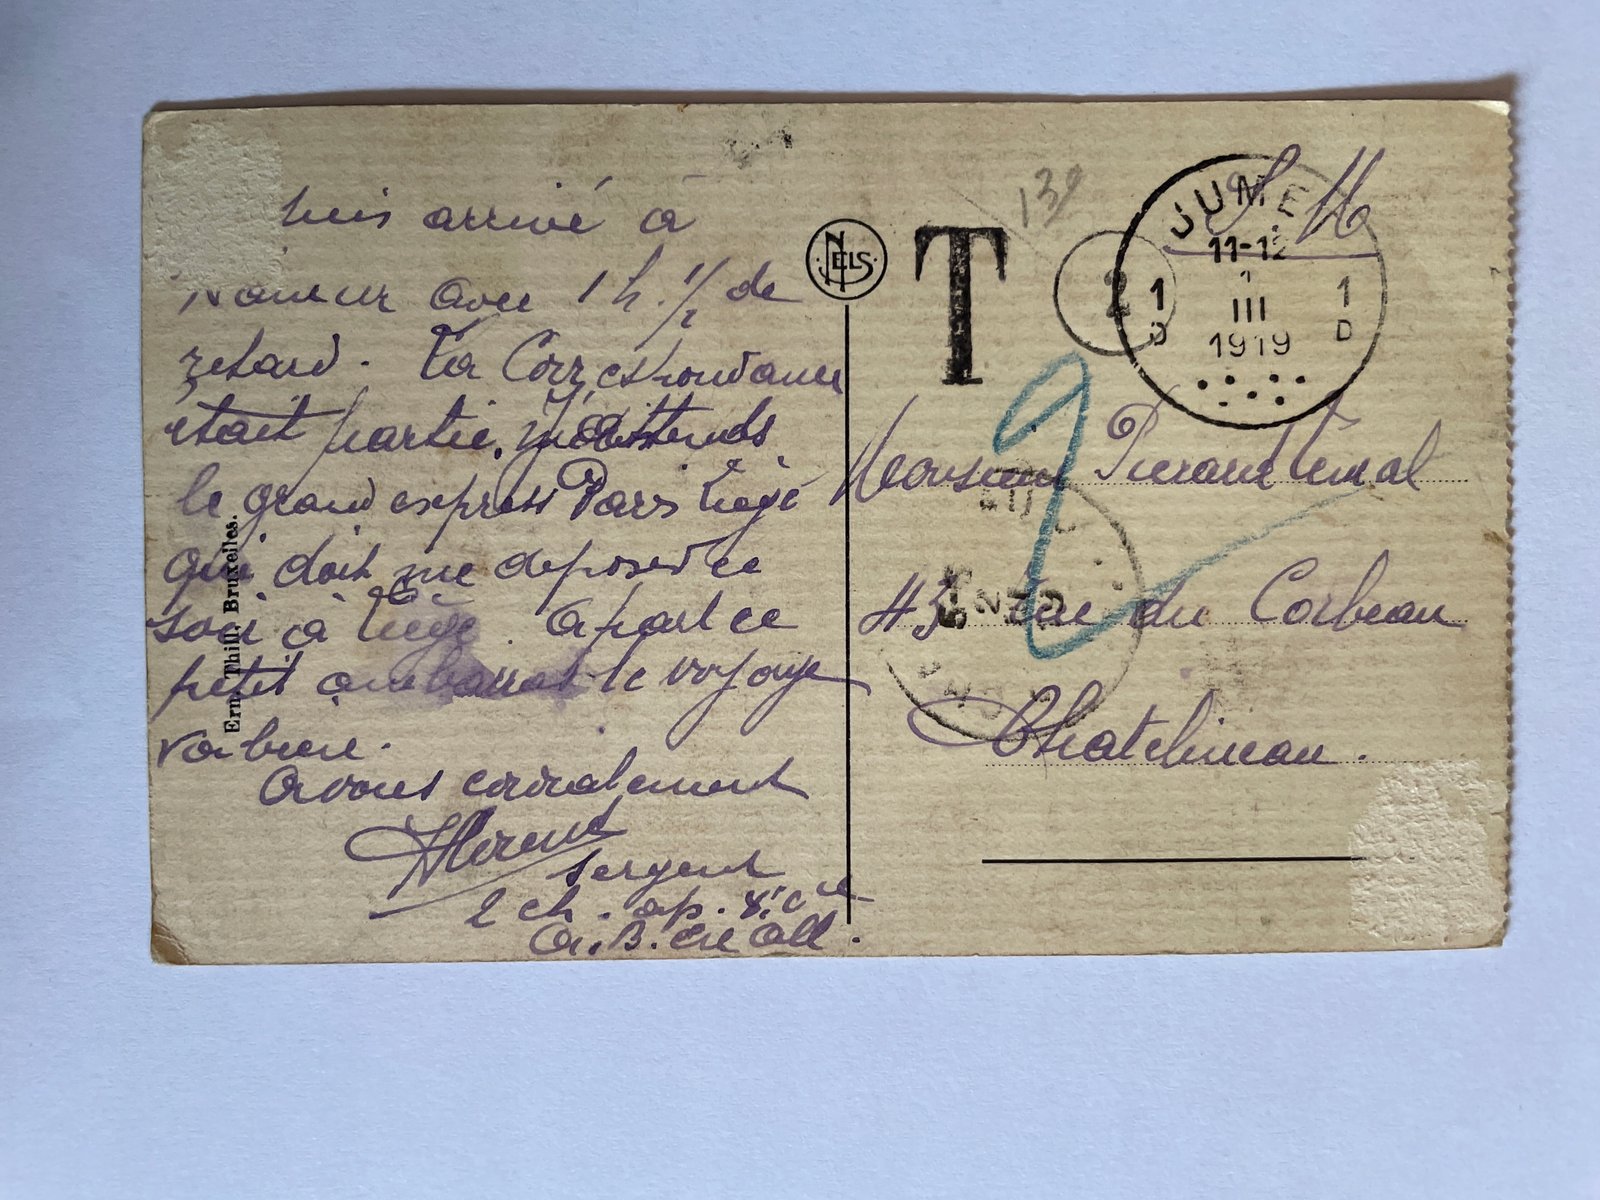 suis arrivé à
Namur avec 1 h. 1/2 de
retard. La Correspondance
était partie. J'attends
le grand express Paris Liège
qui doit me déposer ce
soir à Liège. à part ce
petit embarras le voyage
va bien.
à vous cordialement
Sergent
2 ch. ap. 
A. B. en All.
Ern. Thill, Bruxelles.
NELS
T
139
S M
2
JUMET
11-12
1
III
1919
1 D
1 D
2
Monsieur
43 rue du Corbeau
Chatelineau.